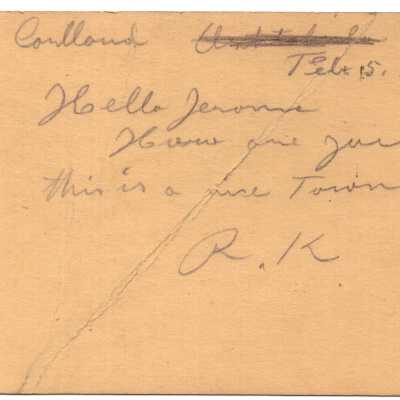 Cortland
Feb 5.
Hello Jerome
How are you
this is a nice Town
R. K